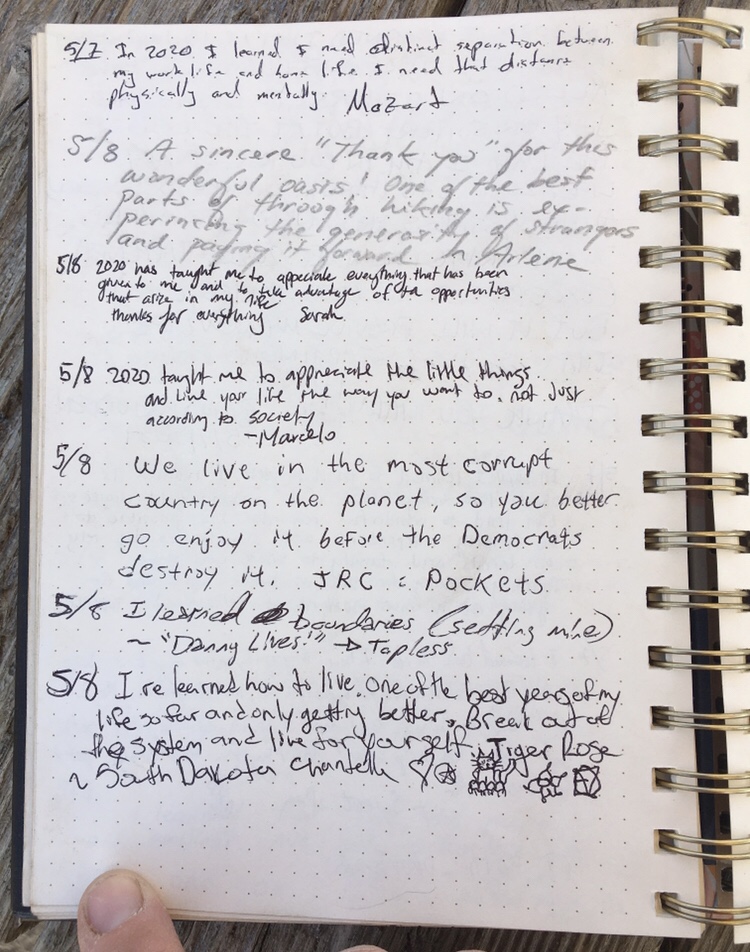 5/7 In 2020 I learned I need distinct separation between
my work life and home life. I need that distance
physically and mentally. Mozart
5/8 A sincere "Thank you" for this
wonderful oasis! One of the best
parts of through hiking is ex-
perincing the generosity of strangors
and paying it forward. Arlene
5/8 2020 has taught me to appeciale everything that has been
given to me and to take advantage of opportunities
that arise in my life
thanks for everything Sarah
5/8 2020 taught me to appreciate the little things.
and live your life the way you want to, not just
according to society
-Marcelo
5/8 We live in the most corrupt
country on the planet, so you better
go enjoy it before the Democrats
destroy it. JRC : Pockets
5/8 I learned boundaries (setting mine)
~ "Danny Lives!" → Tapless
5/8 I relearned how to live. One of the best years of my
life so far and only getting better. Break out of
the system and live for yourself. Tiger Rose
~ South Dakota Chantell